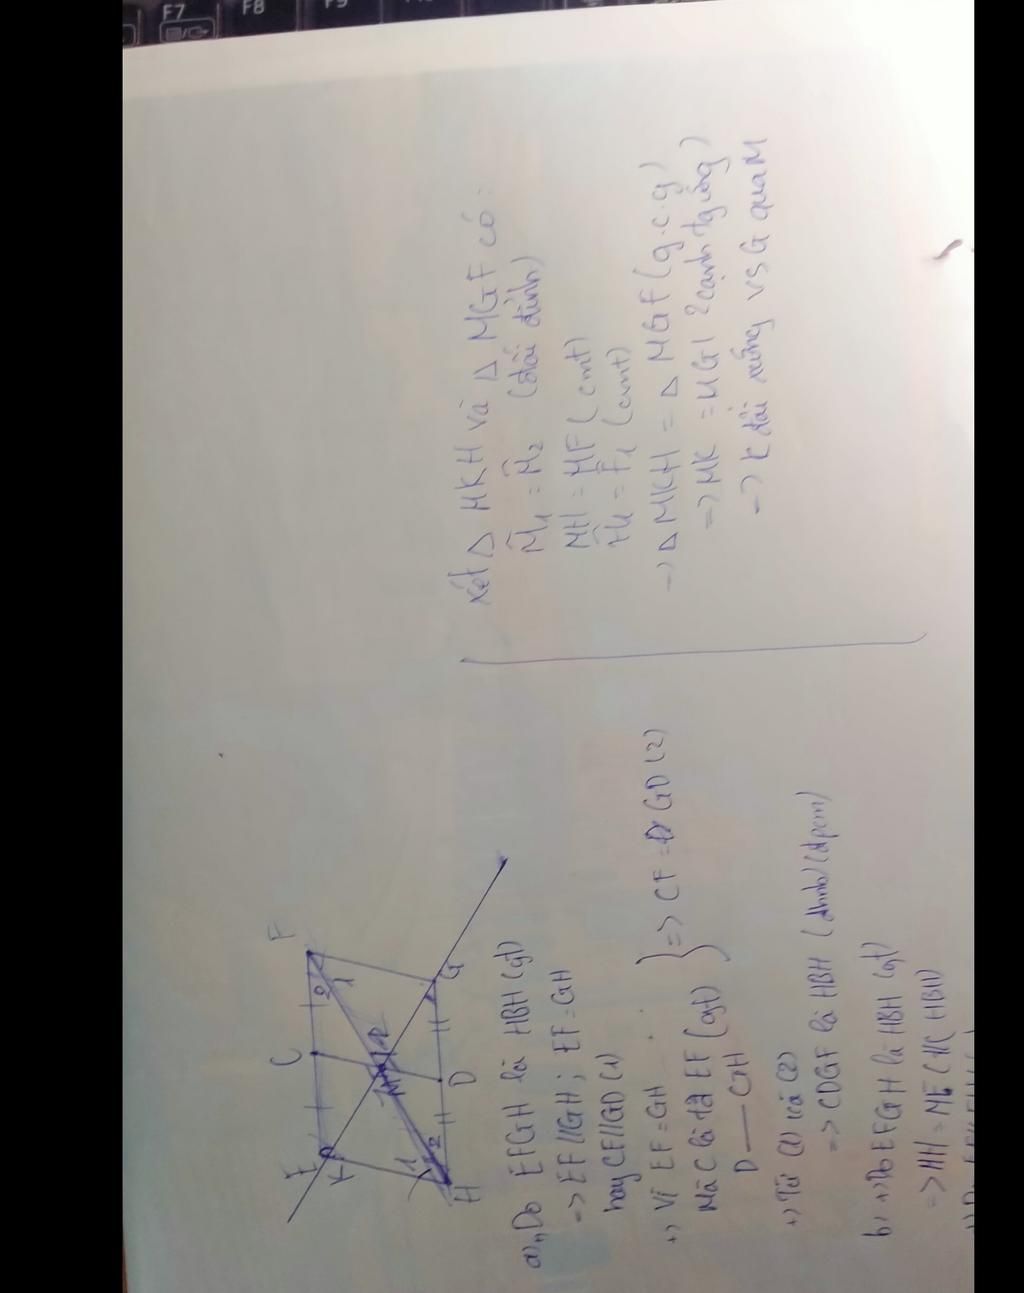 F7
F8
F9
E
K
C
F
2
1
M
1
2
H
D
G
a) +) Do EFGH là HBH (gt)
=> EF // GH ; EF = GH
hay CF // GD (1)
+) Vì EF = GH
Mà C là tđ EF (gt) } => CF = GD (2)
D — GH
+) Từ (1) và (2)
=> CDGF là HBH (dhnb) (đpcm)
b) +) Do EFGH là HBH (gt)
=> MH = MF (t/c HBH)
Xét Δ MKH và Δ MGF có:
M̂1 = M̂2 (đối đỉnh)
MH = MF (cmt)
Ĥ1 = F̂1 (cmt)
-> Δ MKH = Δ MGF (g.c.g)
=> MK = MG (2 cạnh tg ứng)
-> K đối xứng vs G qua M